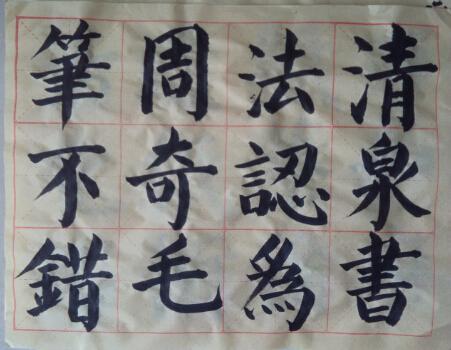 清泉書
法認為
周奇毛
筆不錯